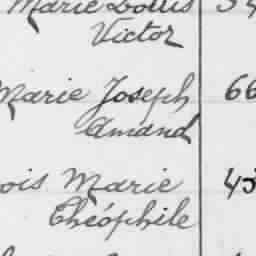 Marie Louis
Victor
Marie Joseph 66
Amand
ois Marie 45
Théophile